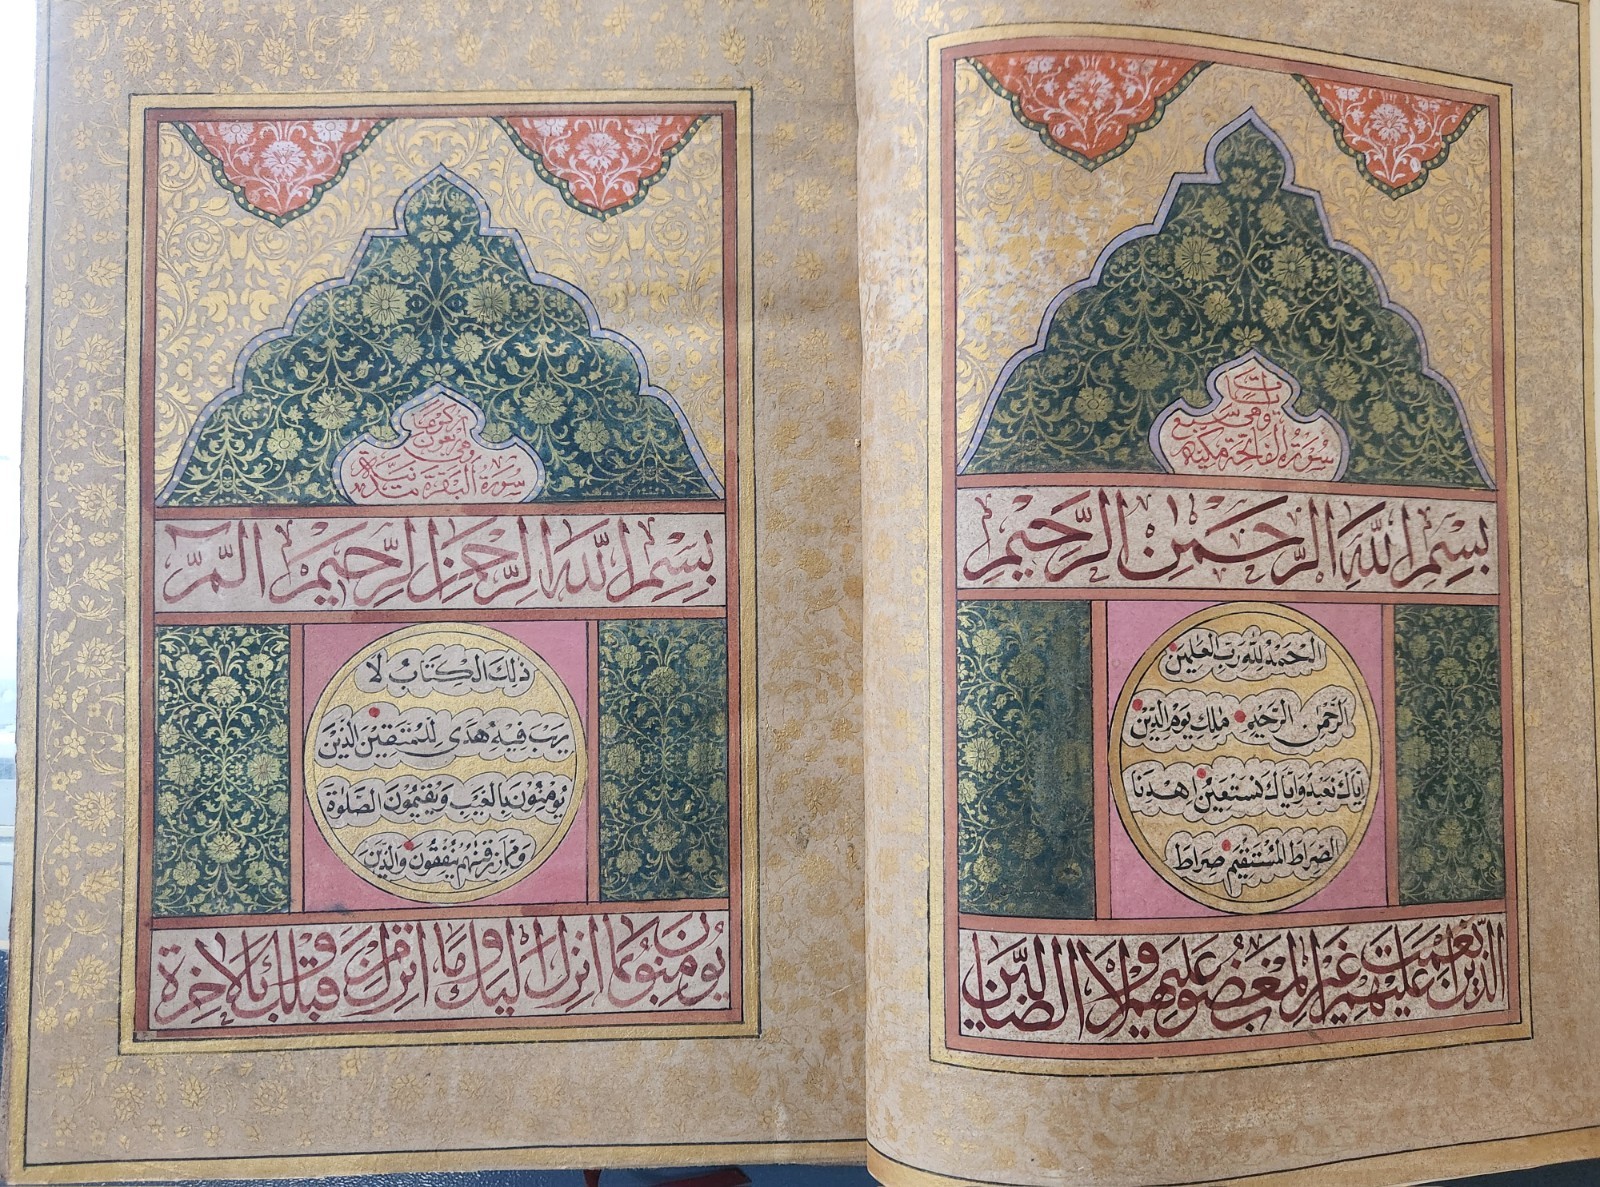 يات
وهي سبع
سورة الفاتحة مكية
بِسْمِ اللَّهِ الرَّحْمٰنِ الرَّحِيمِ
الحمد لله رب العلمين
الرحمن الرحيم ملك يوم الدين
اياك نعبد واياك نستعين اهدنا
الصراط المستقيم صراط
الذين انعمت عليهم غير المغضوب عليهم ولا الضالين
سورة البقرة مدنية
بِسْمِ اللَّهِ الرَّحْمٰنِ الرَّحِيمِ الٓمّٓ
ذلك الكتاب لا
ريب فيه هدى للمتقين الذين
يومنون بالغيب ويقيمون الصلوة
ومما رزقنهم ينفقون والذين
يومنون بما انزل اليك وما انزل من قبلك وبالاخرة